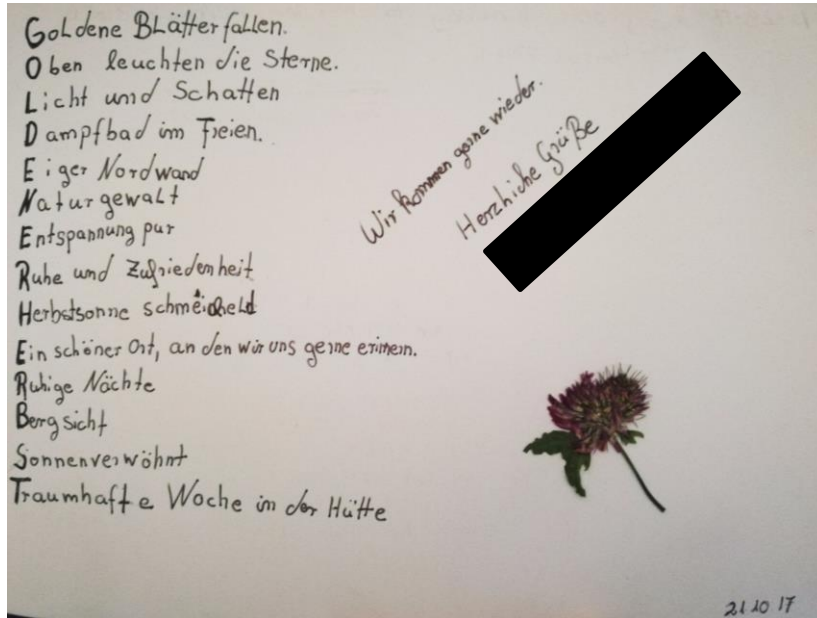 Goldene Blätter fallen.
Oben leuchten die Sterne.
Licht und Schatten
Dampfbad im Freien.
Eiger Nordwand
Naturgewalt
Entspannung pur
Ruhe und Zufriedenheit
Herbstsonne schmeichelt
Ein schöner Ort, an den wir uns gerne erinnern.
Ruhige Nächte
Bergsicht
Sonnenverwöhnt
Traumhafte Woche in der Hütte
Wir kommen gerne wieder.
Herzliche Grüße
21 10 17